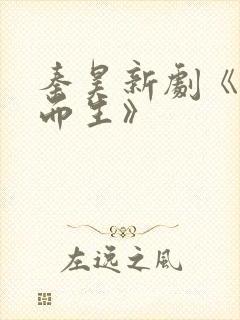 秦昊新劇《
而生》
左逸之風